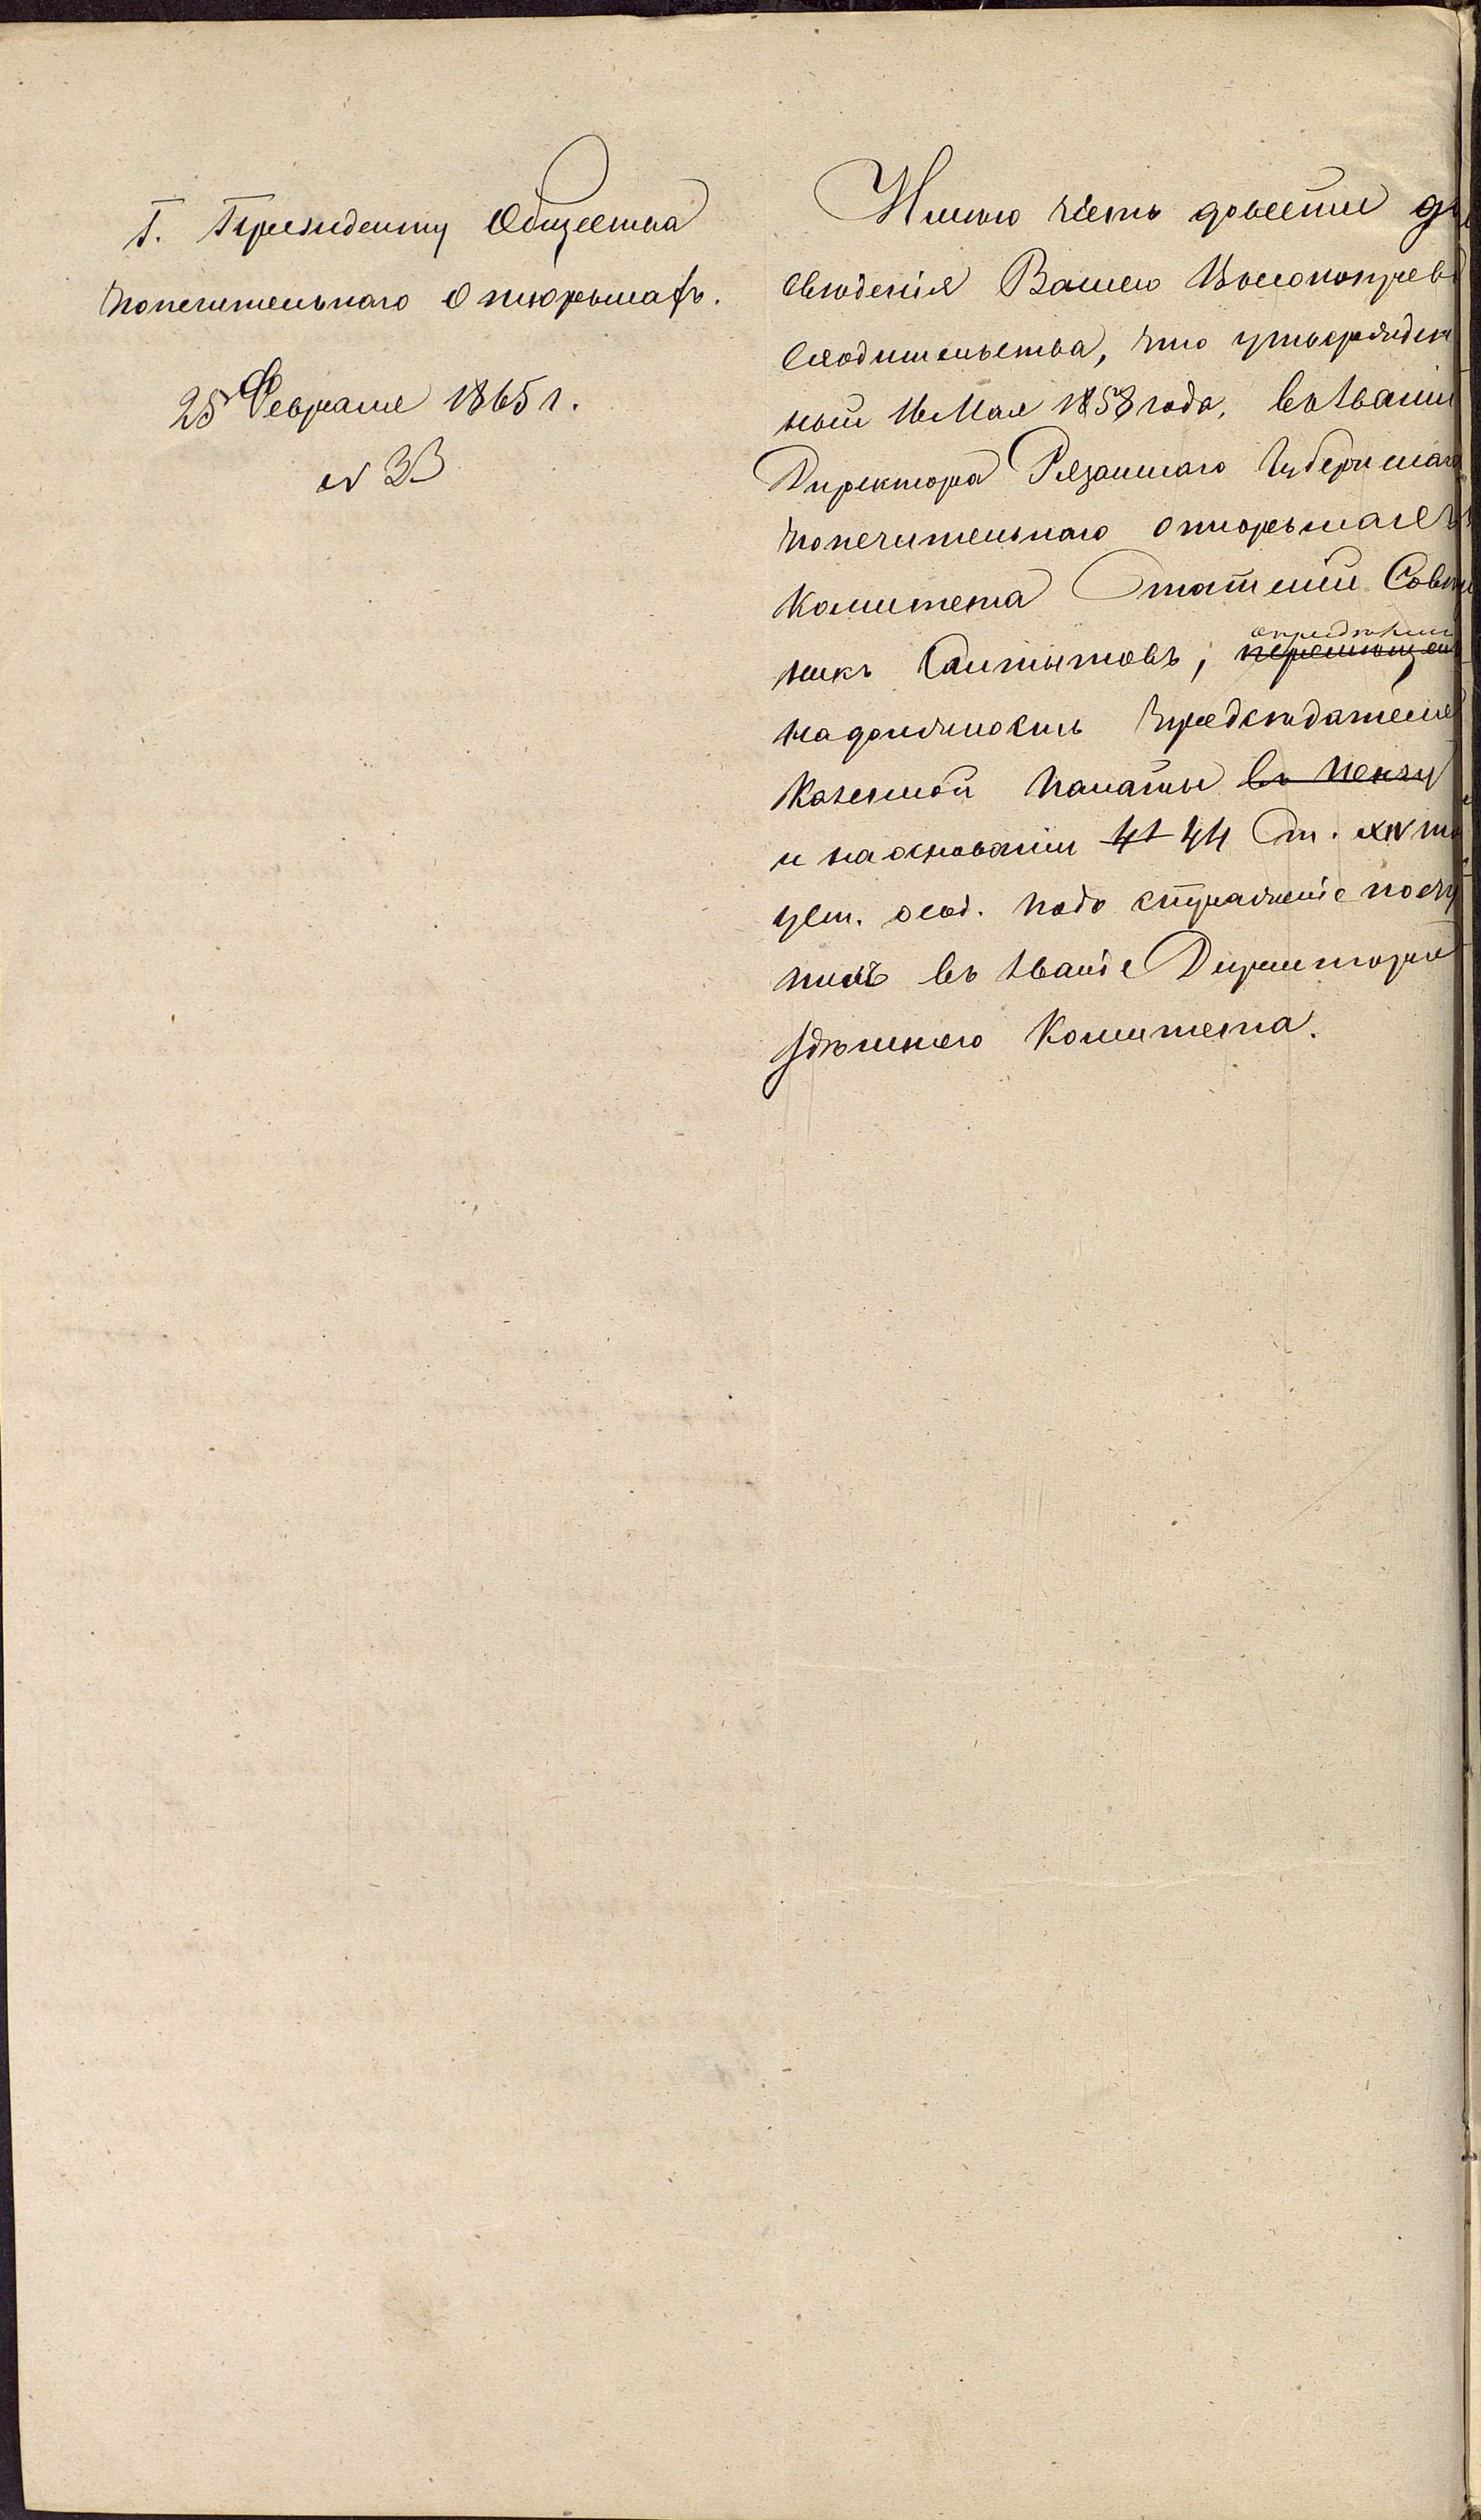 Г. Президенту Общества
попечительнаго о тюрьмахъ.
25 Февраля 1865 г.
№ 33
Имѣю честь довести до
свѣденія Вашего Высокопрево
сходительства, что утвержден
ный 16 Мая 1858 года, въ званіи
Директора Рязанскаго Губернскаго
попечительнаго о тюрьмахъ
Комитета Статскій Совѣт
никъ Салтыковъ, опредѣленъ
перемѣщенъ
на должность Предсѣдателя
Казенной Палаты въ Пензу
и на основаніи 41 44 Ст. XIV то
уст. осод. подъ стражею посту
пилъ въ званіе Директора
здѣшняго Комитета.